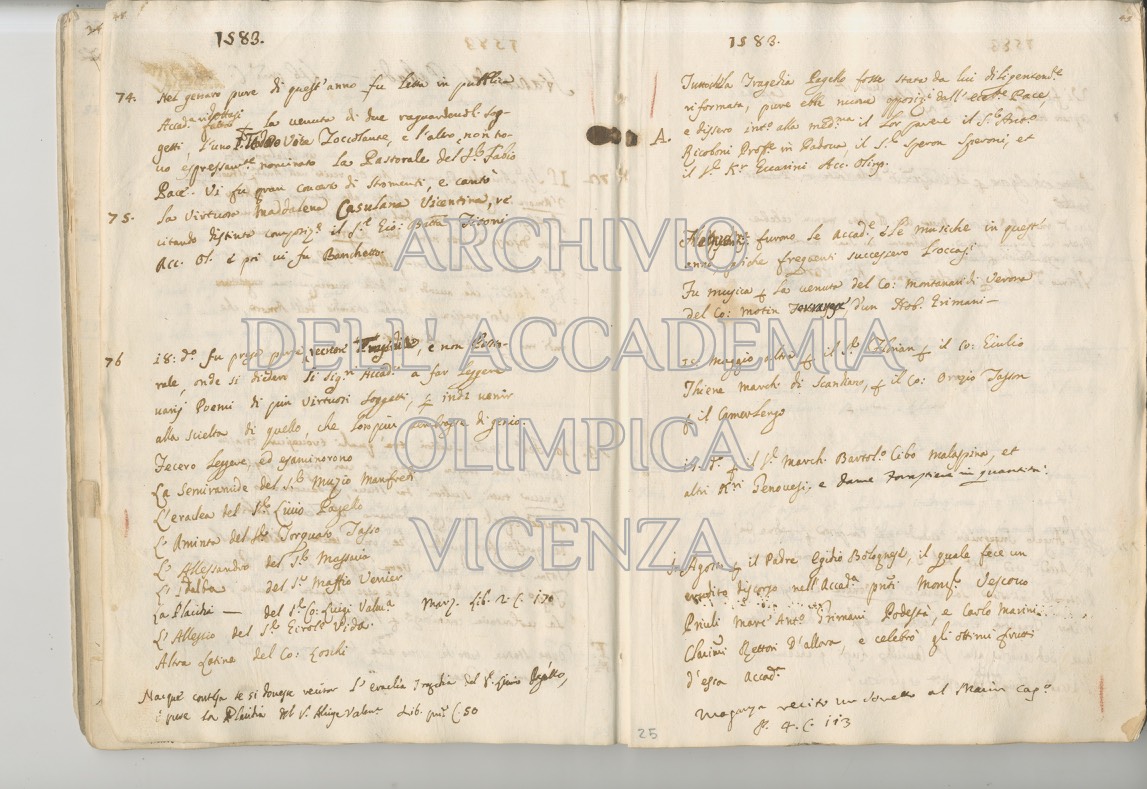 1583.
74. Nel genaro pure di quest'anno fu letta in publica
Accad.a
la venuta di due raguardevoli sog-
getti, l'uno Vita Zoccolante, e l'altro, non tro-
vo espressam.te nominato la Pastorale del S.r Fabio
Pace. Vi fu gran concerto di stromenti, e cantò
75. La virtuosa Maddalena Casulana Vicentina, re
citando distinte composiz.i il S.r Gio: Batta Titoni
Acc. Ol. e poi vi fu Banchetto.
76 18: d.o fu preso pure recitar Tragedia, e non Pasto-
rale, onde si diedero li sig.ri Accad.i a far leggere
varij Poemi di più virtuosi soggetti, indi venir
alla scielta di quello, che lor più di genio.
Fecero leggere, ed esaminorono
La Semiramide del S.r Muzio Manfredi
L'eraclea del S.r Livio Pagello
L'Aminta del S.r Torquato Tasso
L'Allessandro del S.r Massaria
L'Idalba del S.r Maffio Venier
La Placidia — del S.r Co: Luigi Valm.a Marz. Lib. 2. C. 170
L'Alessio del S.r Girol.o Vida.
Altra Latina del Co: Loschi
Nacque contesa se si dovesse recitar L'eraclia Tragedia del S.r Livio Pagello,
ò pure la Placidia del S.r Aluige Valm.a Lib. C. 50
1583.
Tuttoché la Tragedia Pagello fosse stata da lui diligentem.te
riformata, pure ebbe nuove opposiz.i dall' Pace,
A. e dissero int.o alla med.ma il lor parere il S.r Ant.o
Ricoboni Profs.r in Padova, il S.r Speron Speroni, et
il S.r K.r Guarini Acc. Olimp.
furono le Accad.e, e le musiche in quest'
anno, perche frequenti successero l'occas.i
Fu musica la venuta del Co: Montanari di Verona
del Co: d'un Nob. Grimani —
15 Maggio altra il S.r Florian il Co: Giulio
Thiene March: di Scandian, il Co: Orazio
il Camerlengo
il S.r March: Bartol.o Cibo Malaspina, et
altri K.ri Genovesi, e dame in quantità:
Agosto il Padre Egidio Bolognese, il quale fece un
erudito discorso nell'Accad.a pnti Mons.r Vescovo
Priuli Marc' Ant.o Grimani Podestà, e Carlo Marini
Clariss.mi Rettori d'allora e celebrò gli ottimi frutti
d'essa Accad.a
Maganza recitò un sonetto al Marin Cap.o
4. C. 113
25
ARCHIVIO
DELL'ACCADEMIA
OLIMPICA
VICENZA